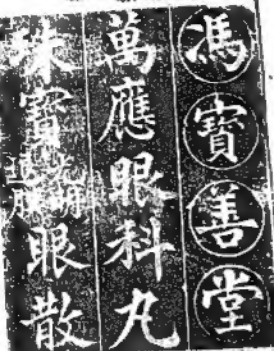 馮寶善堂
萬應眼科丸
珠寶光明退眼散